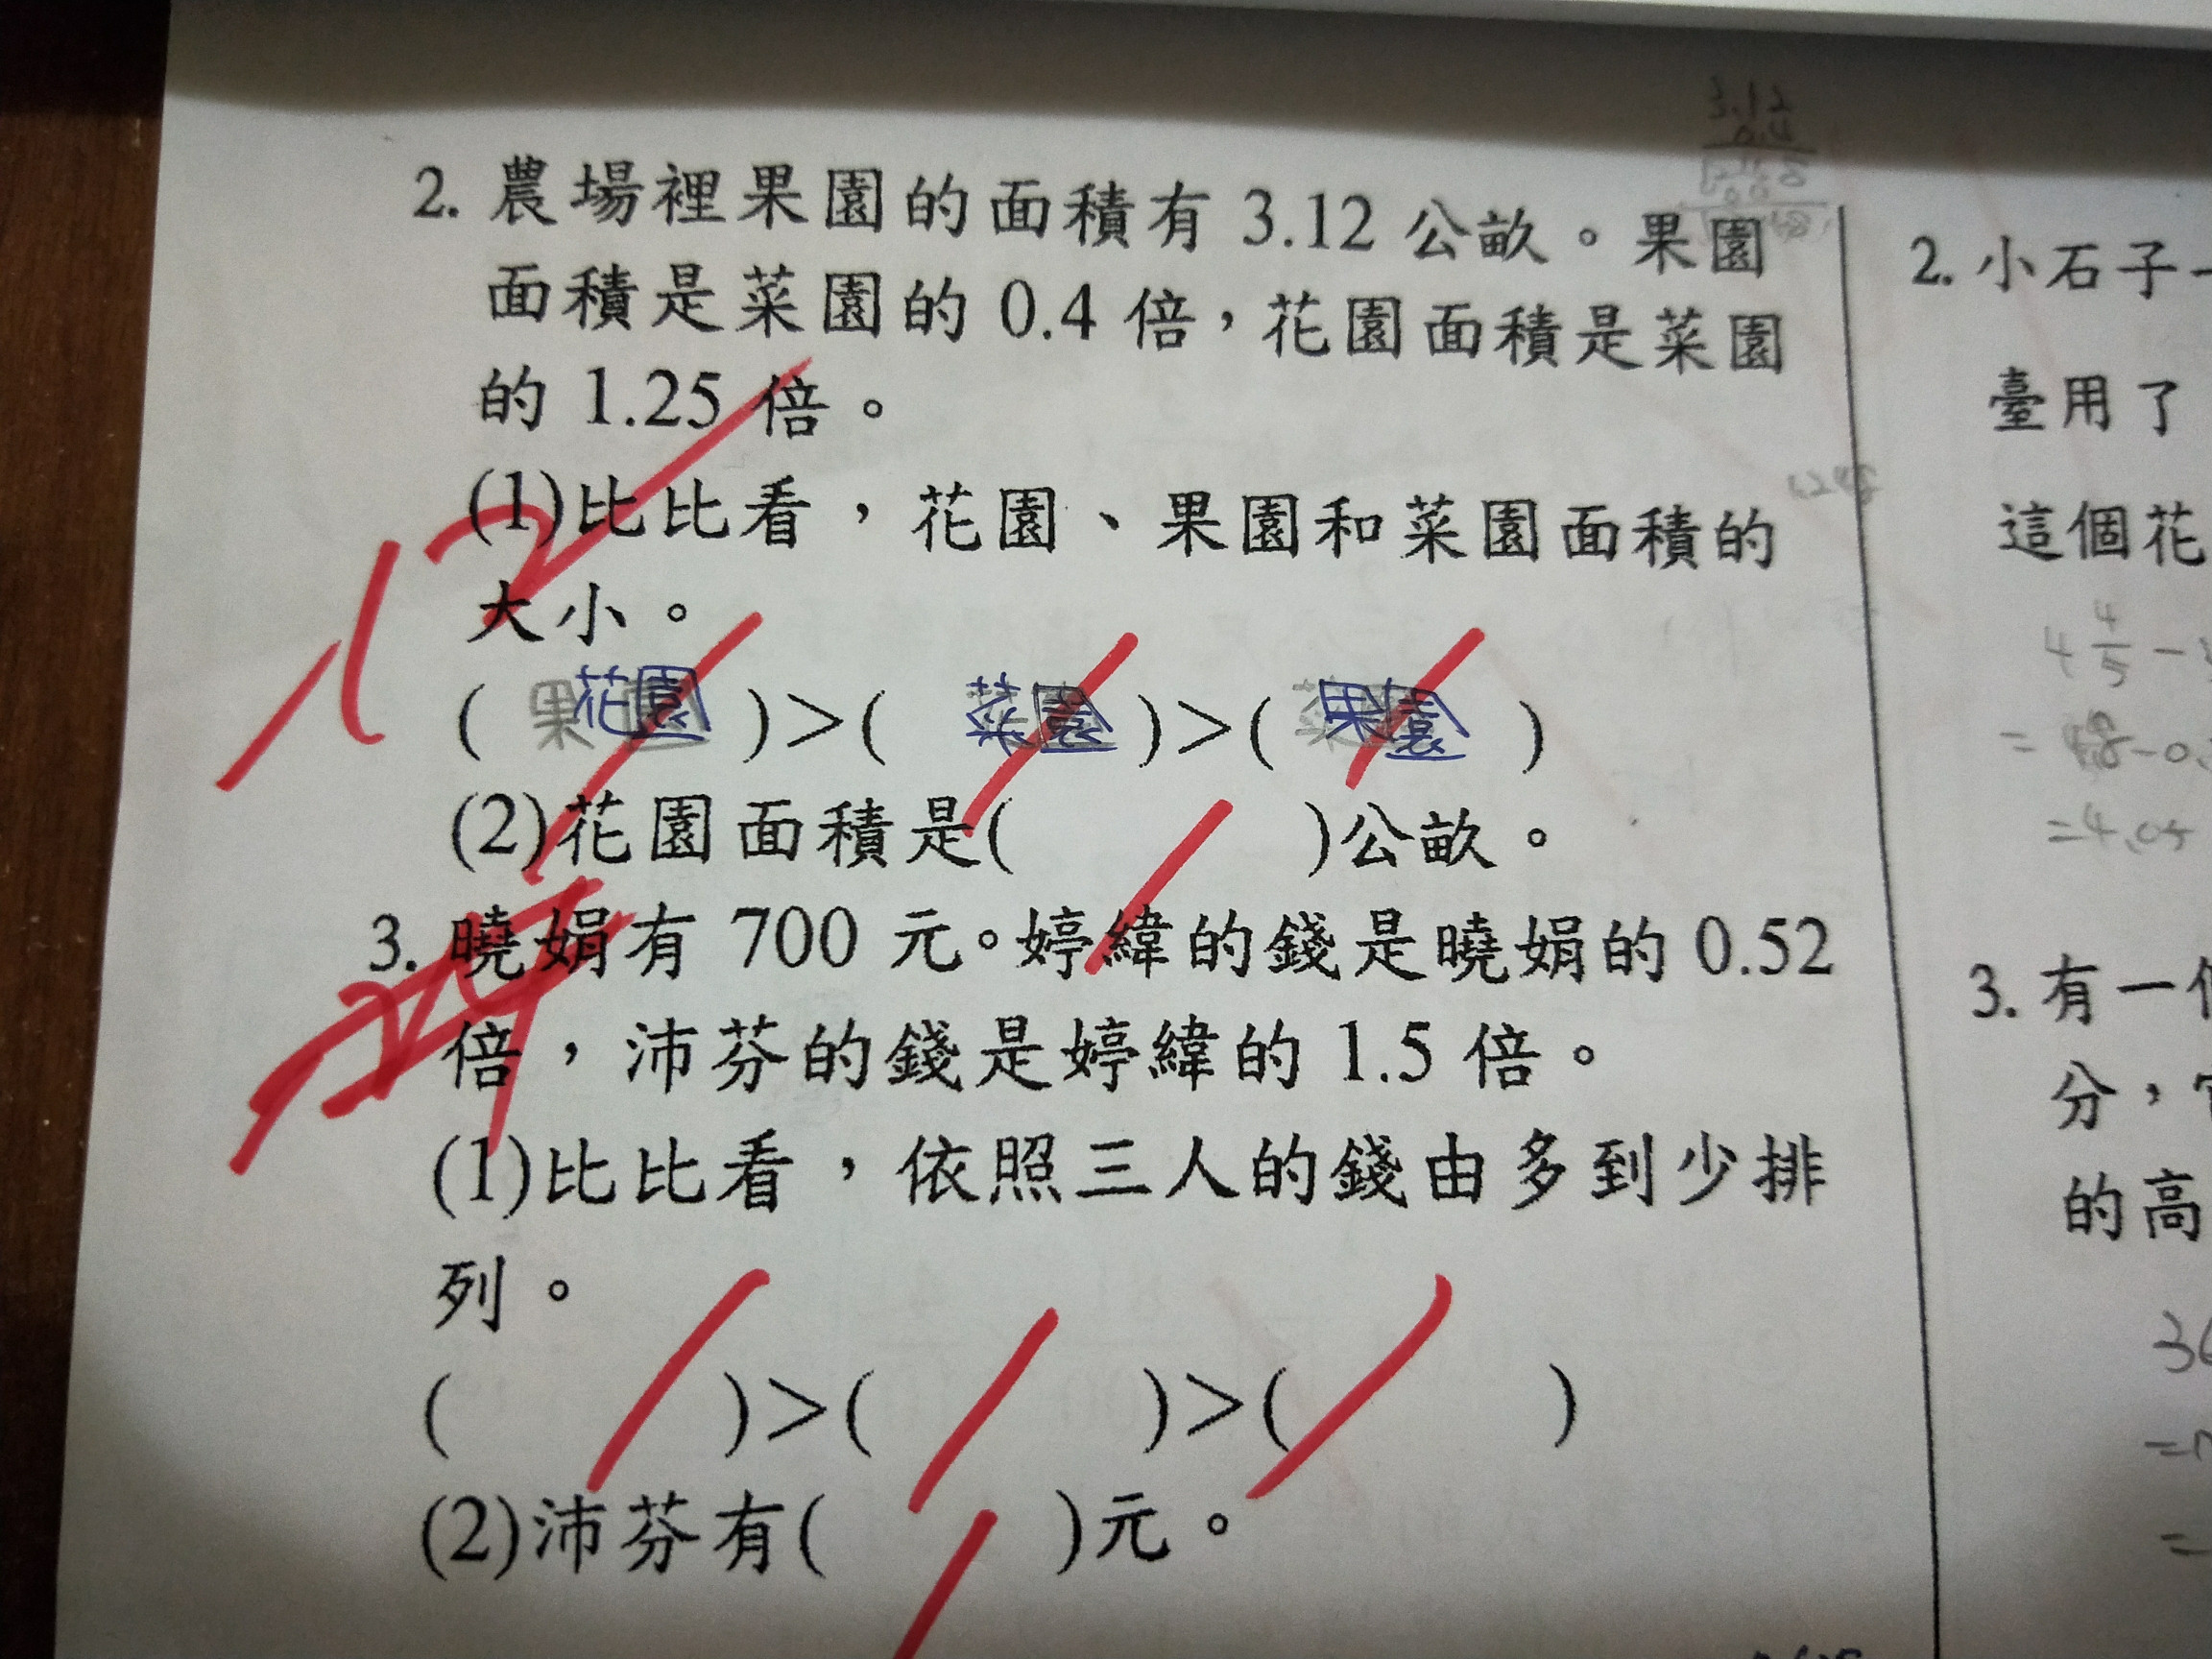 3.12
0.4
2. 農場裡果園的面積有 3.12 公畝。果園
面積是菜園的 0.4 倍，花園面積是菜園
的 1.25 倍。
(1)比比看，花園、果園和菜園面積的
大小。
( 花園 )＞( 菜園 )＞( 果園 )
(2)花園面積是( )公畝。
3. 曉娟有 700 元。婷緯的錢是曉娟的 0.52
倍，沛芬的錢是婷緯的 1.5 倍。
(1)比比看，依照三人的錢由多到少排
列。
( )＞( )＞( )
(2)沛芬有( )元。
2. 小石子
臺用了
這個花
4 4/5 −
=4.05
3. 有一
分，
的高